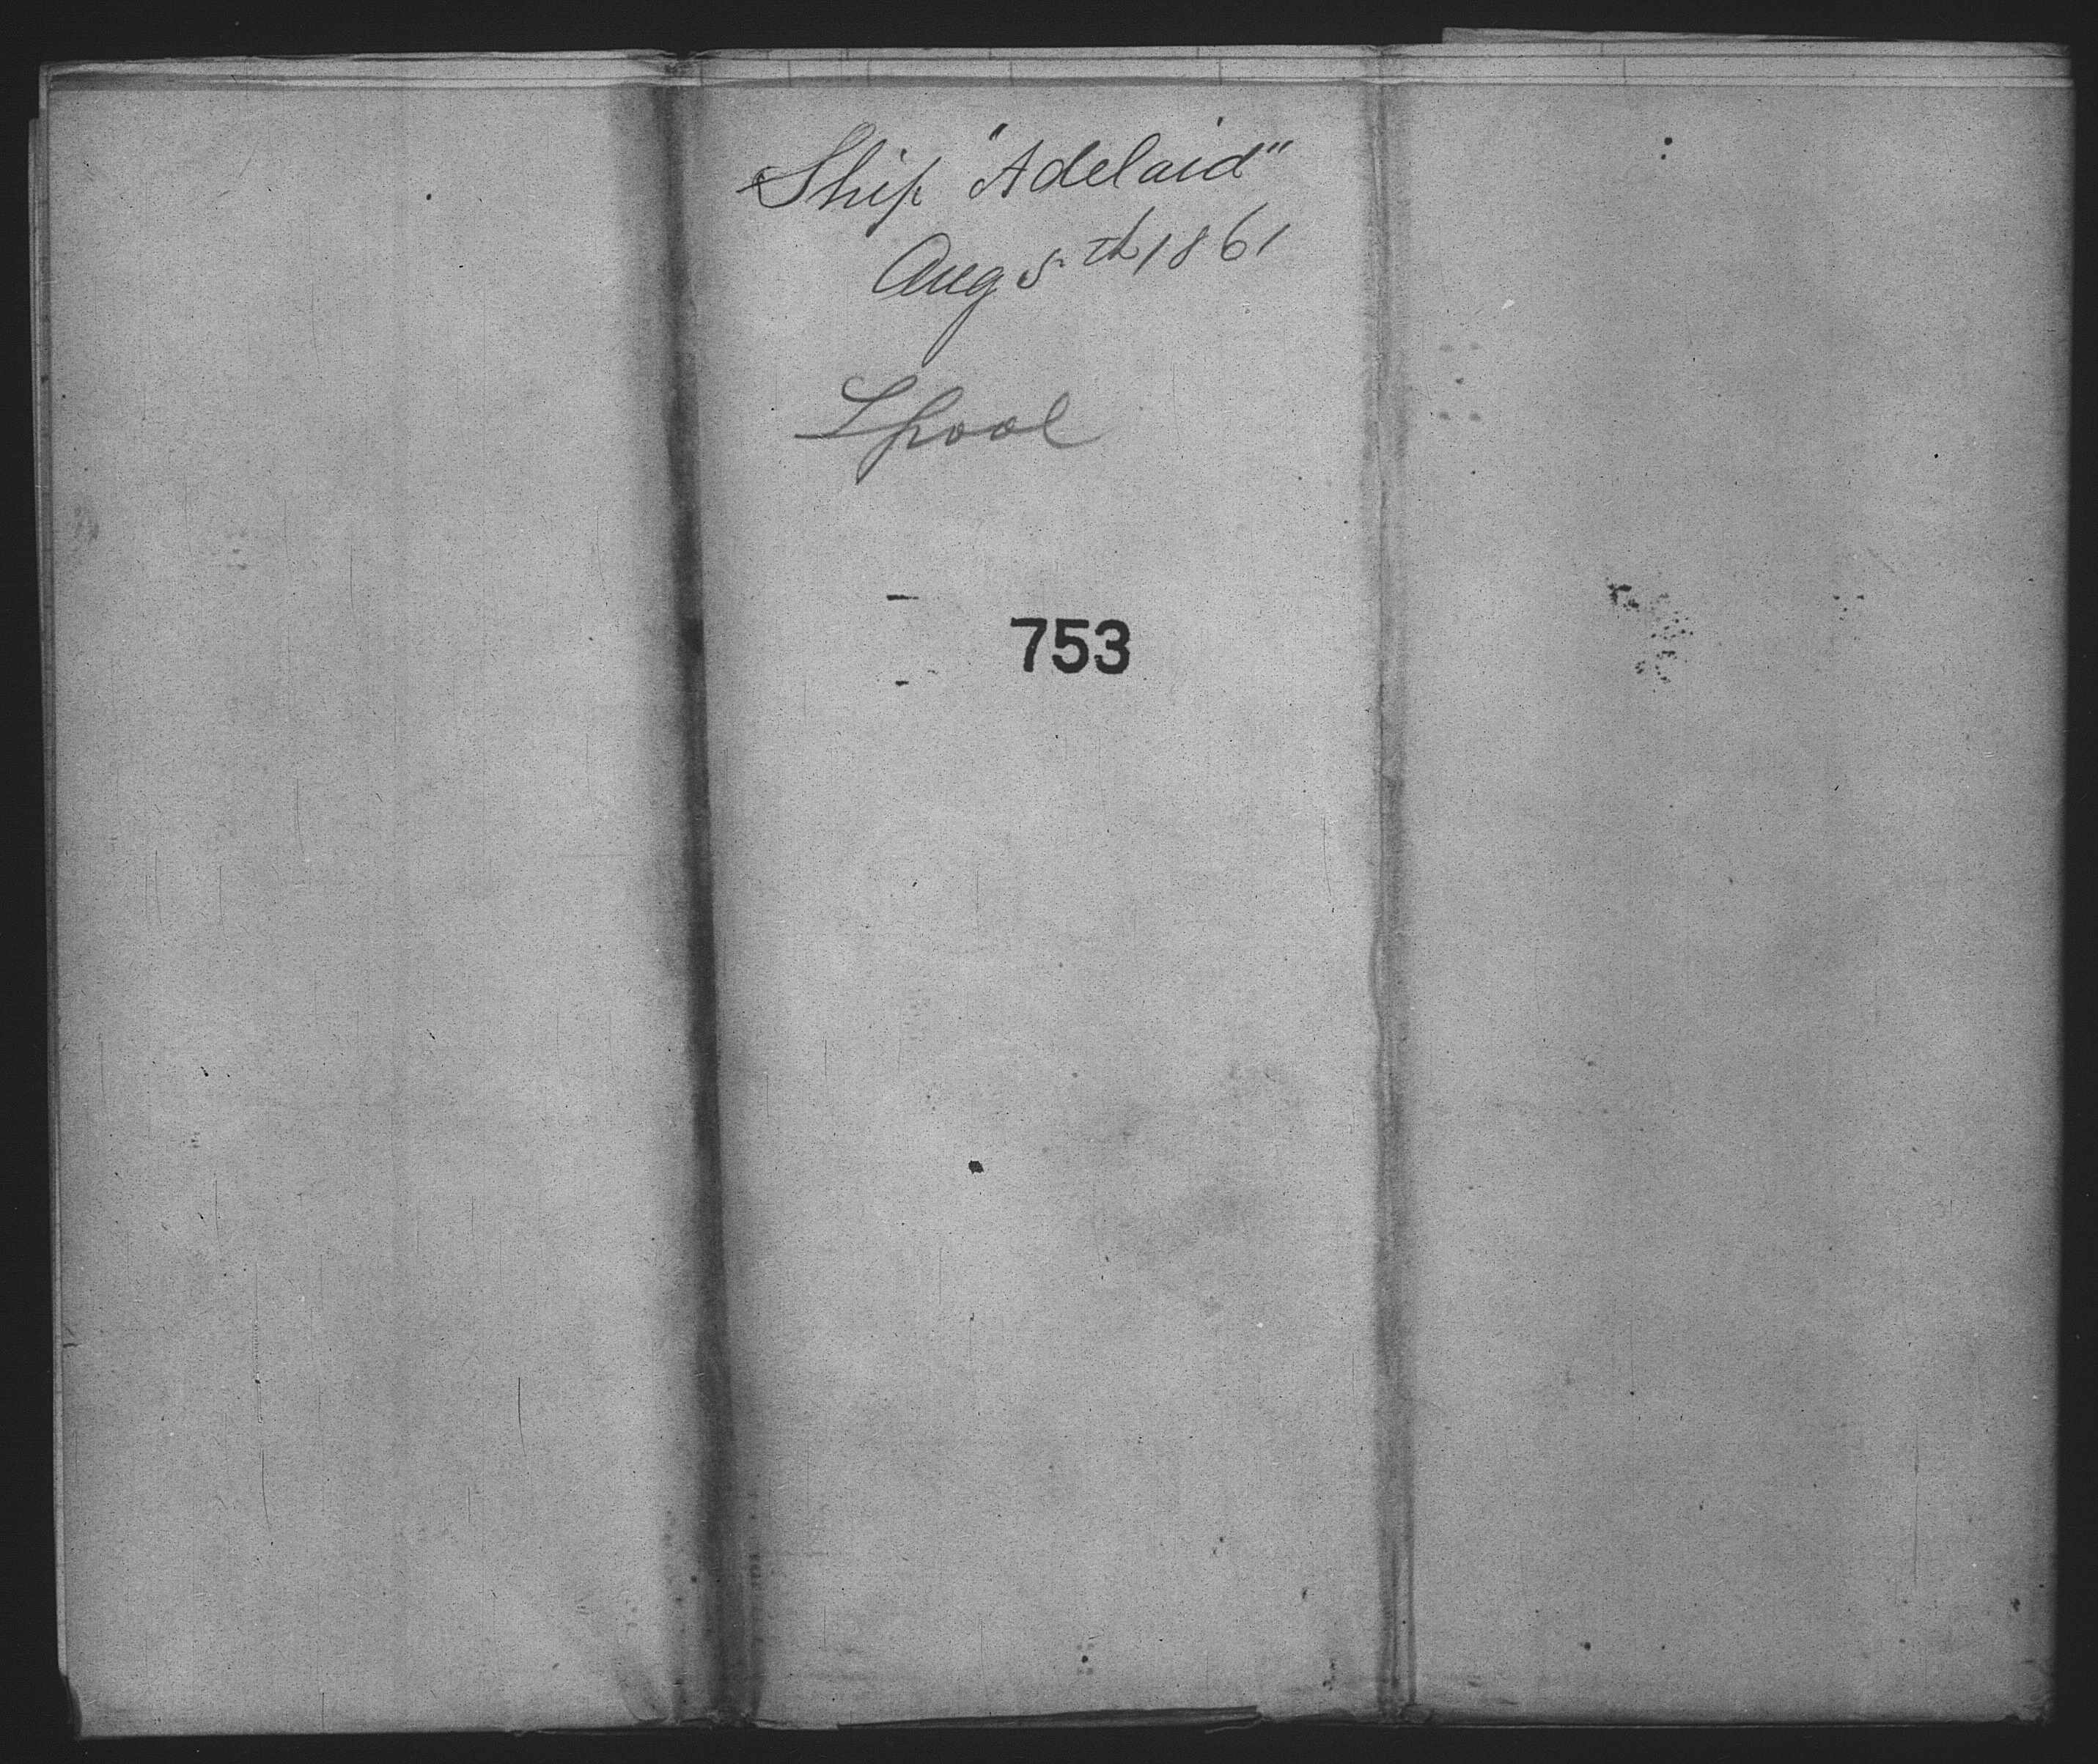 Ship "Adelaid"
Aug 5th 1861
Lpool
753